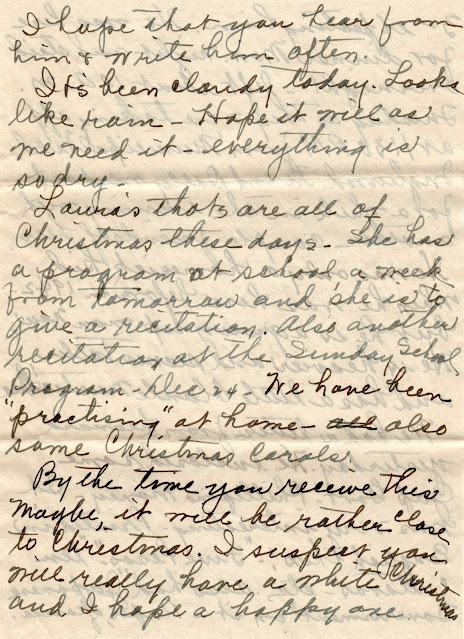 I hope that you hear from
him & write him often.
It's been cloudy today. Looks
like rain - Hope it will as
we need it - everything is
so dry -
Laura's thots are all of
Christmas these days - She has
a program at school a week
from tomorrow and she is to
give a recitation. Also another
recitation at the Sunday School
Program - Dec 24 - We have been
"practising" at home - all also
some Christmas Carols.
By the time you receive this
maybe, it will be rather close
to Christmas. I suspect you
will really have a white Christmas
and I hope a happy one